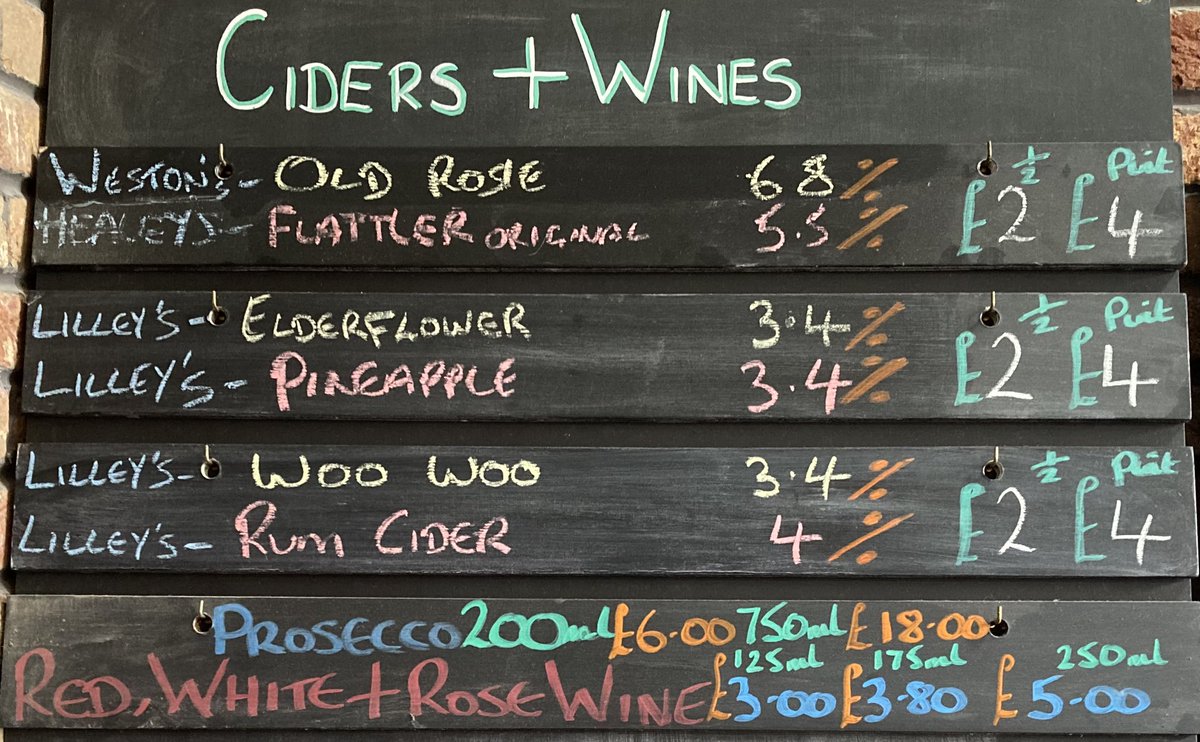 CIDERS + WINES
WESTON'S - OLD ROSIE 6 8 % £2 ½ £4 Pint
HEALEYS - FLATTLER ORIGINAL 5.5 %
LILLEY'S - ELDERFLOWER 3.4 % £2 ½ £4 Pint
LILLEY'S - PINEAPPLE 3.4 %
LILLEY'S - WOO WOO 3.4 % £2 ½ £4 Pint
LILLEY'S - RUM CIDER 4 %
PROSECCO 200ml £6.00 750ml £18.00
RED, WHITE + ROSE WINE £3.00 125ml £3.80 175ml £5.00 250ml